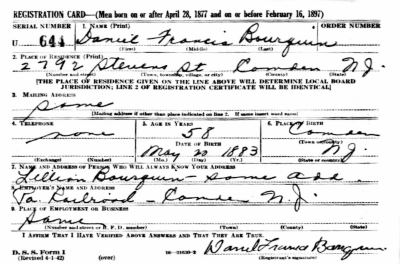 REGISTRATION CARD—(Men born on or after April 28, 1877 and on or before February 16, 1897)
SERIAL NUMBER 1. NAME (Print) ORDER NUMBER
U 644 Daniel Francis Bourquin
(First) (Middle) (Last)
2. PLACE OF RESIDENCE (Print)
2792 Stevens St Camden N.J.
(Number and street) (Town, township, village, or city) (County) (State)
[THE PLACE OF RESIDENCE GIVEN ON THE LINE ABOVE WILL DETERMINE LOCAL BOARD
JURISDICTION; LINE 2 OF REGISTRATION CERTIFICATE WILL BE IDENTICAL]
3. MAILING ADDRESS
Same
[Mailing address if other than place indicated on line 2. If same insert word same]
4. TELEPHONE 5. AGE IN YEARS 6. PLACE OF BIRTH
none 58 Camden
DATE OF BIRTH (Town or county)
May 20 1883 N.J.
(Exchange) (Number) (Mo.) (Day) (Yr.) (State or country)
7. NAME AND ADDRESS OF PERSON WHO WILL ALWAYS KNOW YOUR ADDRESS
Lillian Bourquin - same add.
8. EMPLOYER'S NAME AND ADDRESS
Pa. Railroad - Camden N.J.
9. PLACE OF EMPLOYMENT OR BUSINESS
Same
(Number and street or R. F. D. number) (Town) (County) (State)
I AFFIRM THAT I HAVE VERIFIED ABOVE ANSWERS AND THAT THEY ARE TRUE.
D. S. S. Form 1 Daniel Francis Bourquin
(Revised 4-1-42) (over) (Registrant's signature)